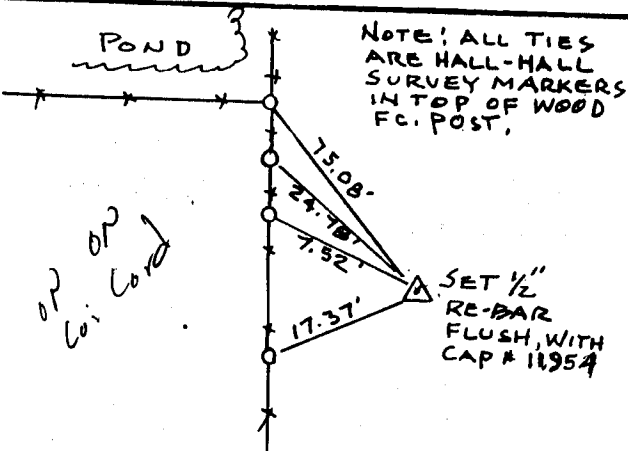 POND
NOTE: ALL TIES
ARE HALL-HALL
SURVEY MARKERS
IN TOP OF WOOD
FC. POST.
75.08'
24.78'
7.52'
17.37'
SET 1/2"
RE-BAR
FLUSH, WITH
CAP # 11954
OP OP
Cor Cord